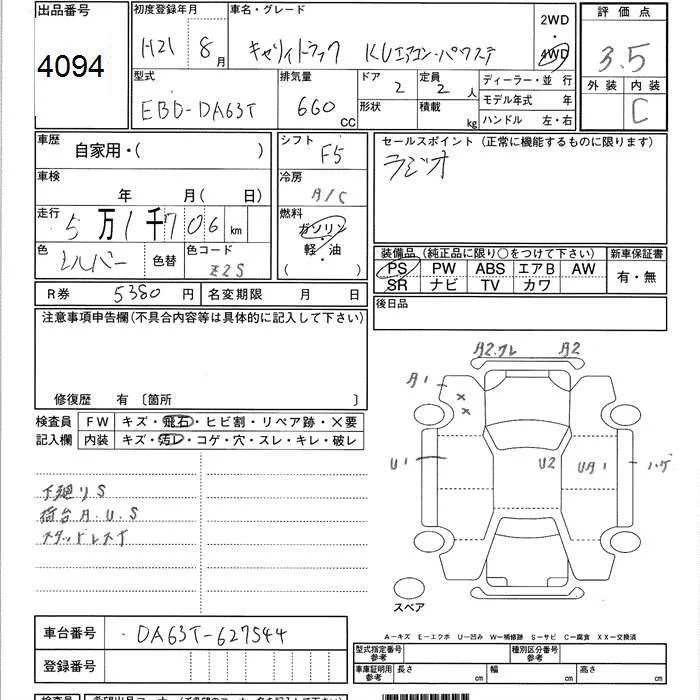 出品番号 4094
初度登録年月 H21年 8月
車名・グレード キャリィトラック KUエアコン・パワステ
2WD・4WD
評価点 3.5
外装 内装 C
型式 EBD-DA63T
排気量 660 CC
ドア 2
定員 2 人
形状 積載 kg
ディーラー・並行
モデル年式 年
ハンドル 左・右
車歴 自家用・( )
シフト F5
セールスポイント (正常に機能するものに限ります)
ラジオ
車検 年 月( 日)
冷房 A/C
走行 5万1千706 km
燃料 ガソリン・軽・油 ( )
色 シルバー 色替
色コード Z2S
装備品 (純正品に限り○をつけて下さい)
PS PW ABS エアB AW
SR ナビ TV カワ
新車保証書 有・無
R券 5380 円 名変期限 月 日
後日品
注意事項申告欄(不具合内容等は具体的に記入して下さい)
修復歴 有 〔箇所 〕
検査員 FW キズ・飛石・ヒビ割・リペア跡・×要
記入欄 内装 キズ・汚レ・コゲ・穴・スレ・キレ・破レ
下廻りS
荷台A.U.S
スタッドレスT
A2.ワレ A2
A1
× ×
U1 U2 UA1 ハゲ
スペア
車台番号 DA63T-627544
登録番号
A―キズ E―エクボ U―凹み W―補修跡 S―サビ C―腐食 XX―交換済
型式指定番号 参考 種別区分番号 参考
車庫証明用 参考 長さ cm 幅 cm 高さ cm